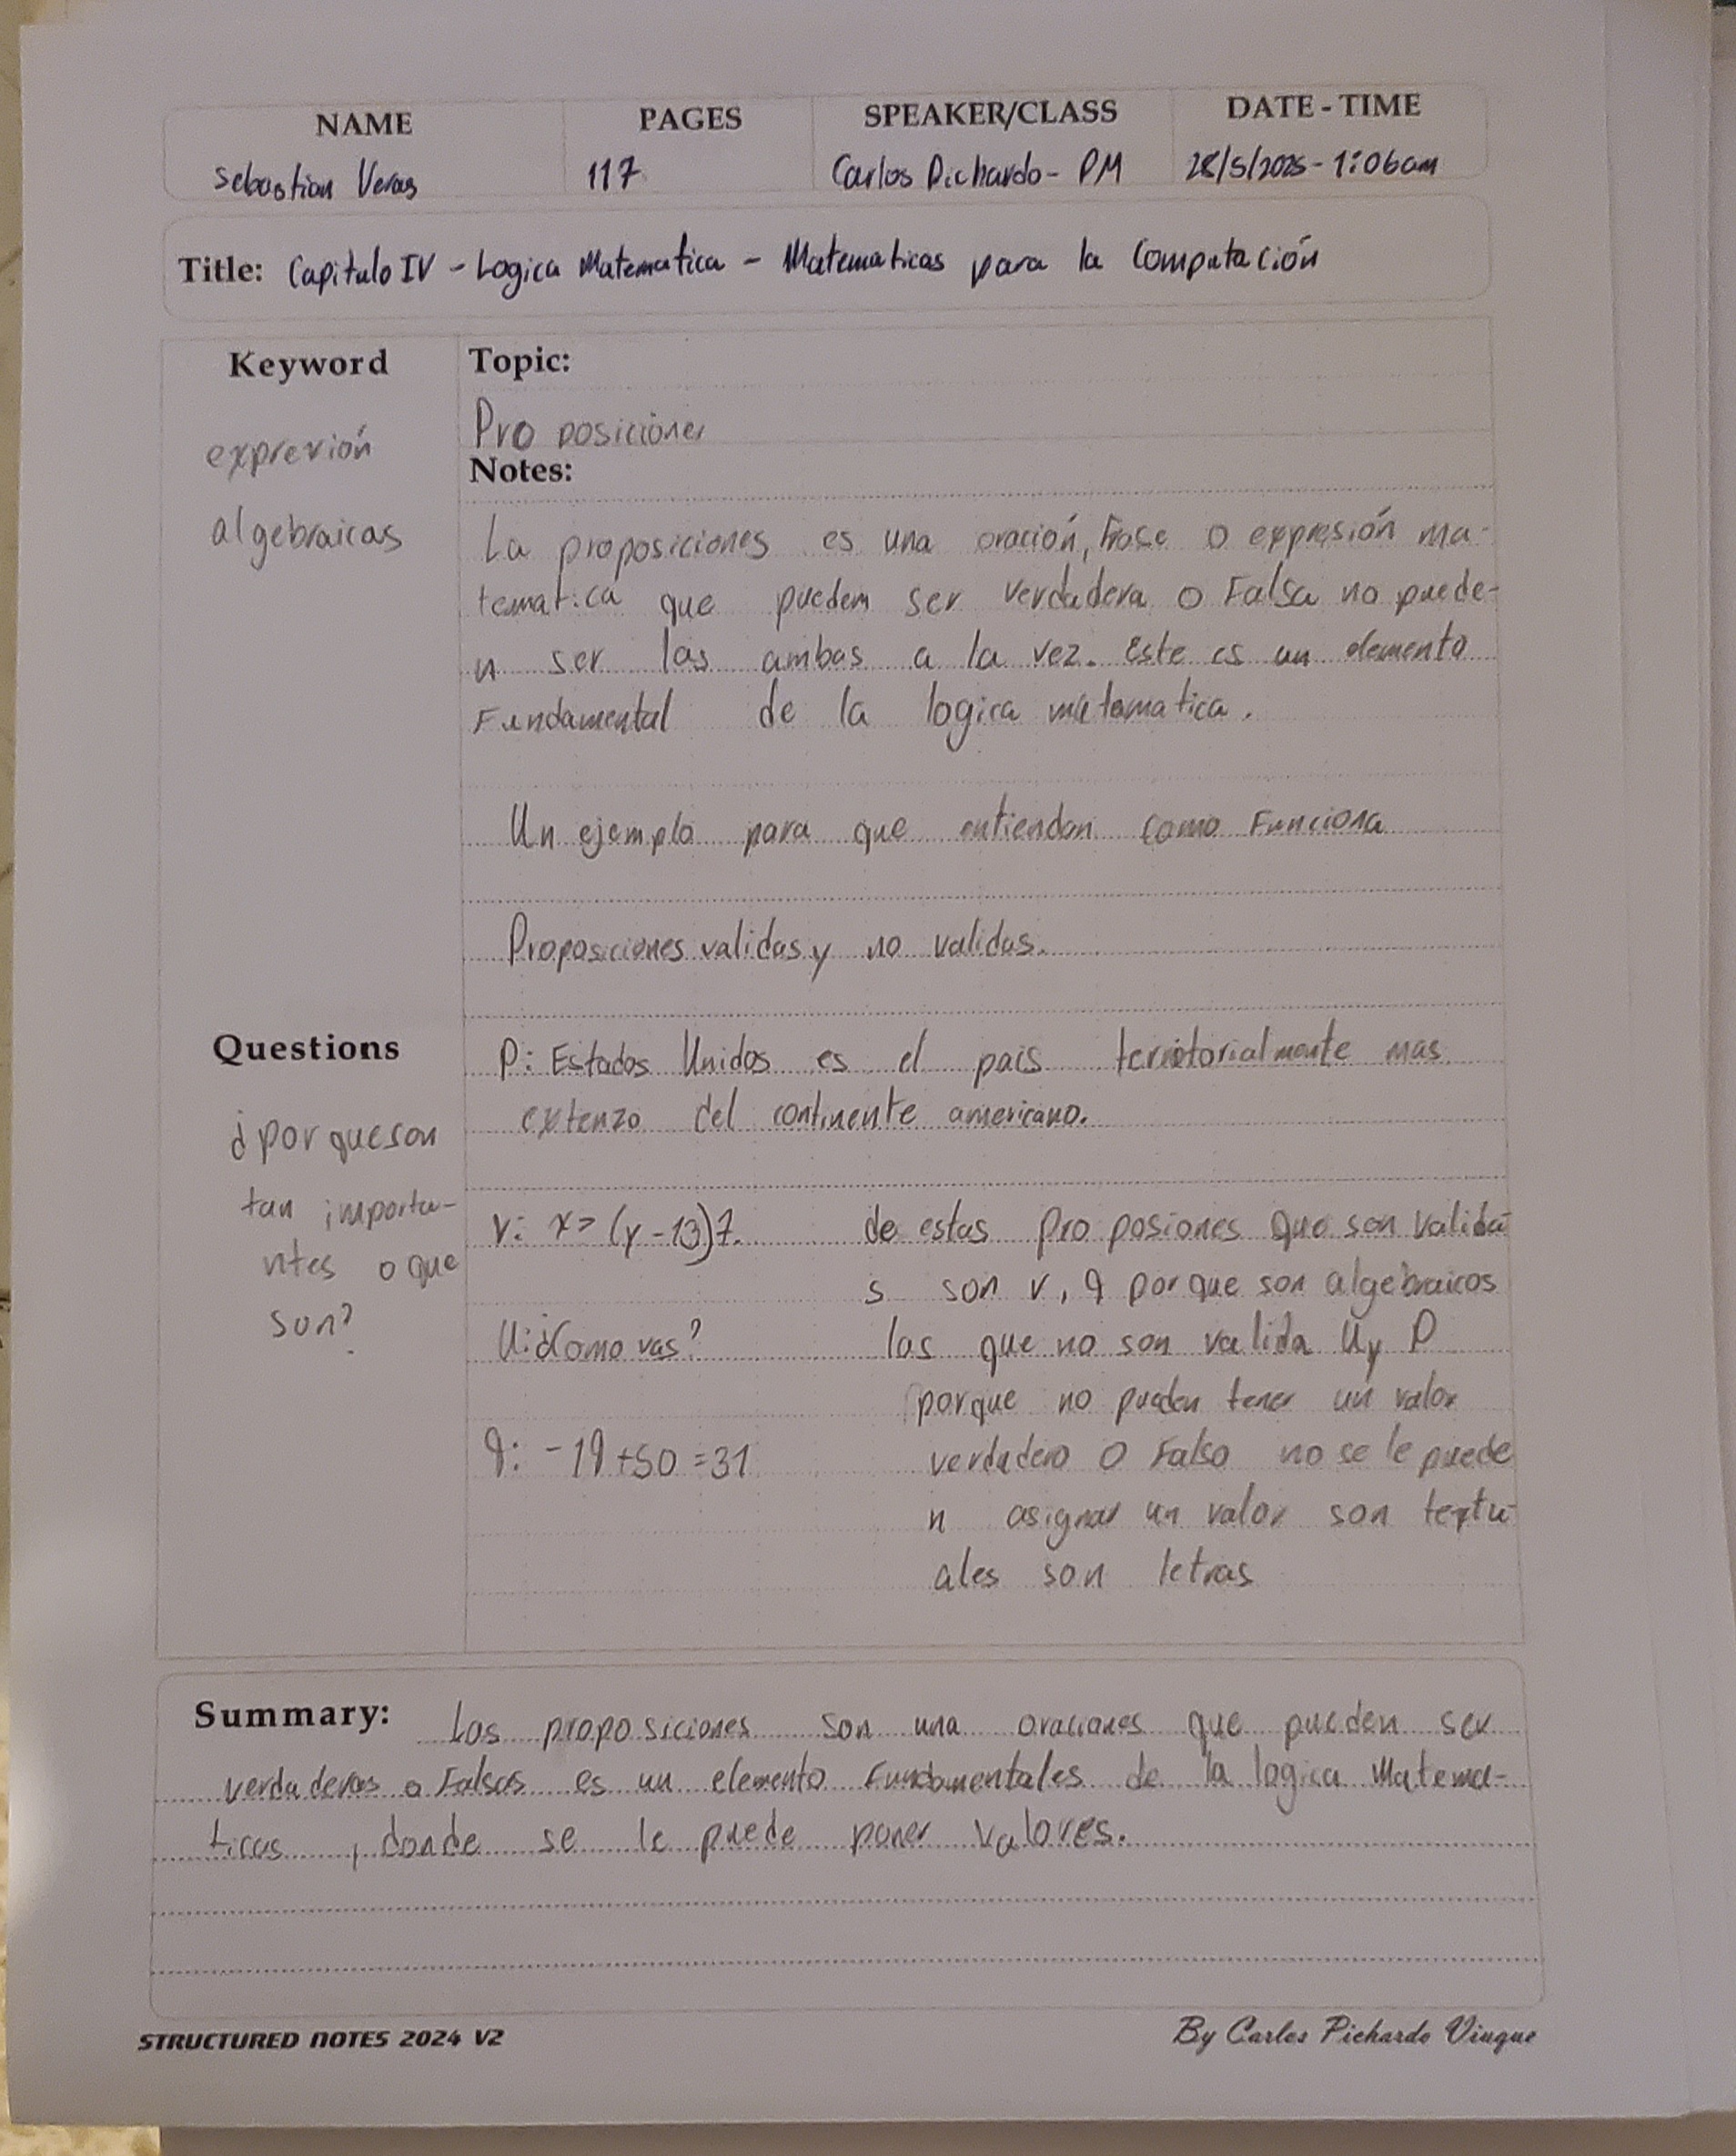 NAME PAGES SPEAKER/CLASS DATE - TIME
Sebastian Veras 117 Carlos Pichardo - PM 28/5/2025 - 1:06am
Title: Capitulo IV - Logica Matematica - Matematicas para la Computación
Keyword
expresión
algebraicas
Topic:
Pro posiciones
Notes:
La proposiciones es una oración, frase o expresión ma-
tematica que pueden ser verdadera o Falsa no puede-
n ser las ambas a la vez. Este es un elemento
Fundamental de la logica matematica.
Un ejemplo para que entiendan como Funciona
Proposiciones validas y no validas.
Questions
¿por que son
tan importa-
ntes o que
son?
P: Estados Unidos es el pais territorialmente mas
extenzo del continente americano.
v: x > (y - 13) 7.
de estas pro posiones que son valida
s son v, q porque son algebraicos
U: ¿Como vas?
las que no son valida U y P
porque no pueden tener un valor
q: -19 + 50 = 31
verdadero o Falso no se le puede
n asignar un valor son textu-
ales son letras
Summary: Las proposiciones son una oraciones que pueden ser
verdaderas o Falsas es un elemento Fundamentales de la logica Matema-
ticas, donde se le puede poner valores.
STRUCTURED NOTES 2024 V2 By Carlos Pichardo Viuque